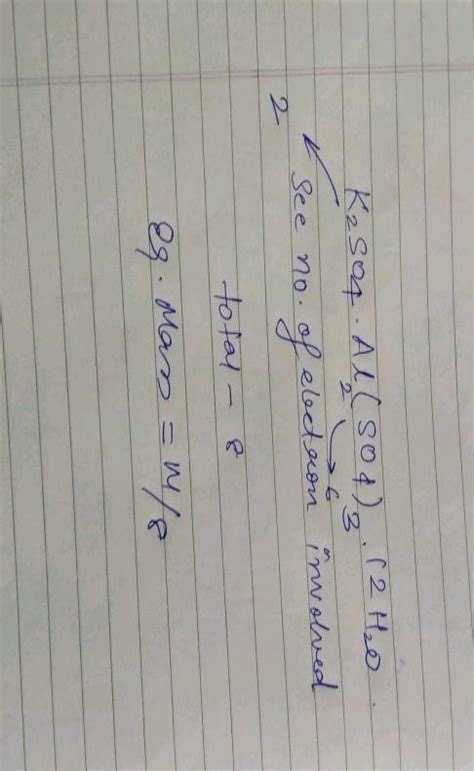 K2SO4 · Al2(SO4)3 · 12H2O.
2
6
See no. of electron involved
total - 8
Eq. Mass = M/8